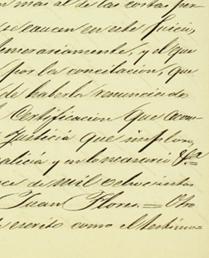 n mas al de las costas que
se causen en este juicio,
temerariamente, y el que
por la conciliacion, que
de haberla renunciado
Certificacion que acom
Justicia que imploro,
malicia y en lo necesario &ª
ce de mil ochocientos
Juan Flores. = Otro
escrito como el testimo